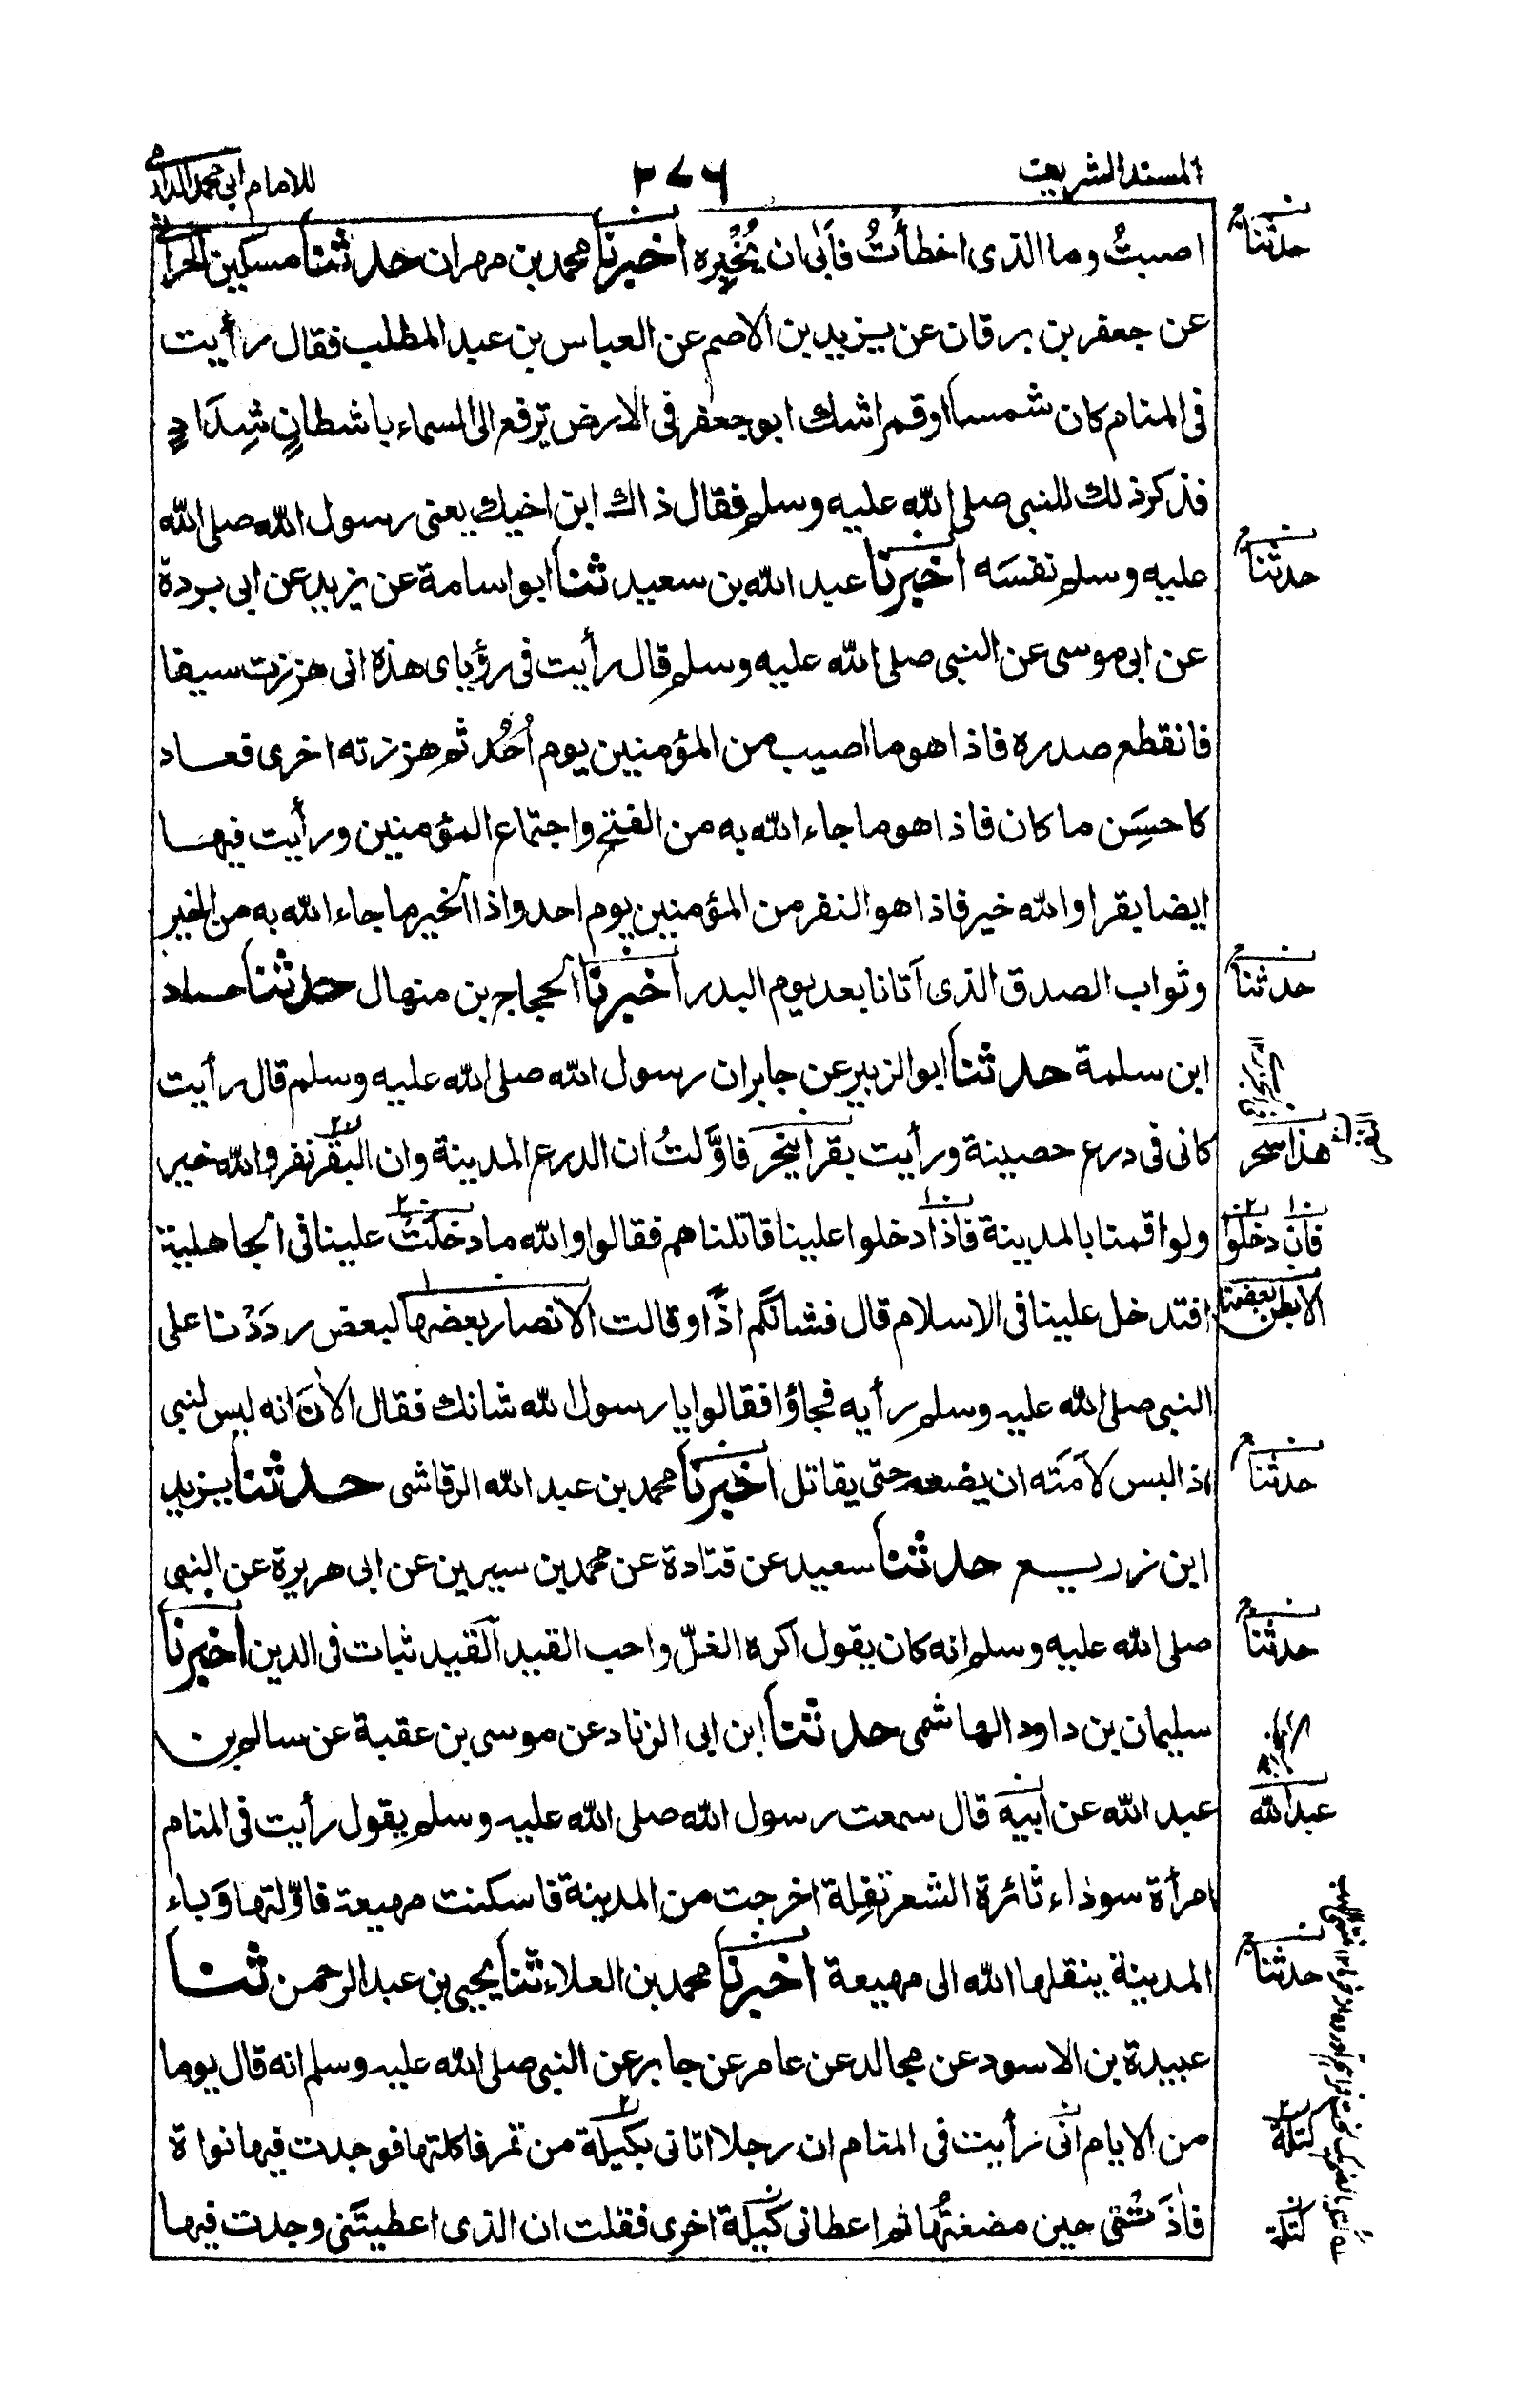 المسند الشريف
٢٧٦
للامام ابي محمد الدارمي
اصبتُ وما الذي اخطأتُ فأبى ان يُخْبِره اخبرنا محمد بن مهران حدثنا مسكين الحراني
عن جعفر بن برقان عن يزيد بن الاصم عن العباس بن عبد المطلب فقال رأيت
في المنام كان شمسا او قمرا شك ابو جعفر في الارض ترفع الى السماء باشطانٍ شِدَادٍ
فذكر ذلك للنبي صلى الله عليه وسلم فقال ذاك ابن اخيك يعني رسول الله صلى الله
عليه وسلم نفسَه اخبرنا عبد الله بن سعيد ثنا ابو اسامة عن يزيد عن ابي بردة
عن ابي موسى عن النبي صلى الله عليه وسلم قال رأيت في رؤياى هذه انى هززت سيفا
فانقطع صدره فاذا هو ما اصيب من المؤمنين يوم اُحُد ثم هززته اخرى فعاد
كاحسَن ما كان فاذا هو ما جاء الله به من الفتح واجتماع المؤمنين ورأيت فيها
ايضا بقرا والله خير فاذا هو النفر من المؤمنين يوم احد واذا الخير ما جاء الله به من الخير
وثواب الصدق الذى آتانا بعد يوم البدر اخبرنا الحجاج بن منهال حدثنا حماد
ابن سلمة حدثنا ابو الزبير عن جابر ان رسول الله صلى الله عليه وسلم قال رأيت
كانى فى درع حصينة ورأيت بقرا ينحر فاوَّلتُ ان الدرع المدينة وان البقر نفر والله خير
ولو اقمنا بالمدينة فاذا دخلوا علينا قاتلناهم فقالوا والله ما دخلتْ علينا فى الجاهلية
افتدخل علينا فى الاسلام قال فشانَكم اذًا وقالت الانصار بعضها لبعض رددْنا على
النبى صلى الله عليه وسلم رأيه فجاؤا فقالوا يا رسول الله شانك فقال الاٰنَ انه ليس لنبى
اذا لبس لأمَته ان يضعه حتى يقاتل اخبرنا محمد بن عبد الله الرقاشى حدثنا يزيد
ابن زريع حدثنا سعيد عن قتادة عن محمد بن سيرين عن ابى هريرة عن النبى
صلى الله عليه وسلم انه كان يقول اكره الغلّ واحب القيد القيد ثبات فى الدين اخبرنا
سليمان بن داود الهاشمى حدثنا ابن ابى الزناد عن موسى بن عقبة عن سالم بن
عبد الله عن ابيه قال سمعت رسول الله صلى الله عليه وسلم يقول رأيت فى المنام
امرأة سوداء ثائرة الشعر تَفِلة اخرجت من المدينة فاسكنت مهيعة فاوّلتها وَباء
المدينة ينقلها الله الى مهيعة اخبرنا محمد بن العلاء ثنا يحيى بن عبد الرحمن ثنا
عبيدة بن الاسود عن مجالد عن عامر عن جابر عن النبى صلى الله عليه وسلم انه قال يوما
من الايام انى رأيت فى المنام ان رجلا اتانى بكيلة من تمر فاكلتها فوجدت فيها نواة
فاٰذَتْنى حين مضغتُها ثم اعطانى كَيلة اخرى فقلت ان الذى اعطيتَنى وجدت فيها
حدثنا
حدثنا
حدثنا
هذا سحر
فان دخلوا
حدثنا
حدثنا
عبد الله
حدثنا
كتلة
كتلة